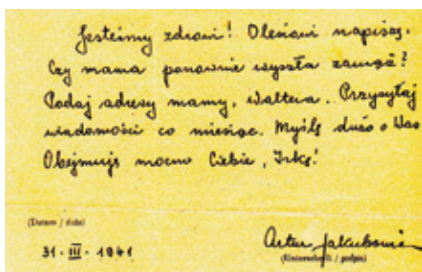 Jesteśmy zdrowi! Oleńowi napiszę.
Czy mama ponownie wyszła zamąż?
Podaj adresy mamy, Waltera. Przysyłaj
wiadomości co miesiąc. Myślę dużo o Was
Obejmuję mocno Ciebie, Irkę!
(Datum / data)
31. III. 1941
Artur Jakubowicz
(Unterschrift / podpis)